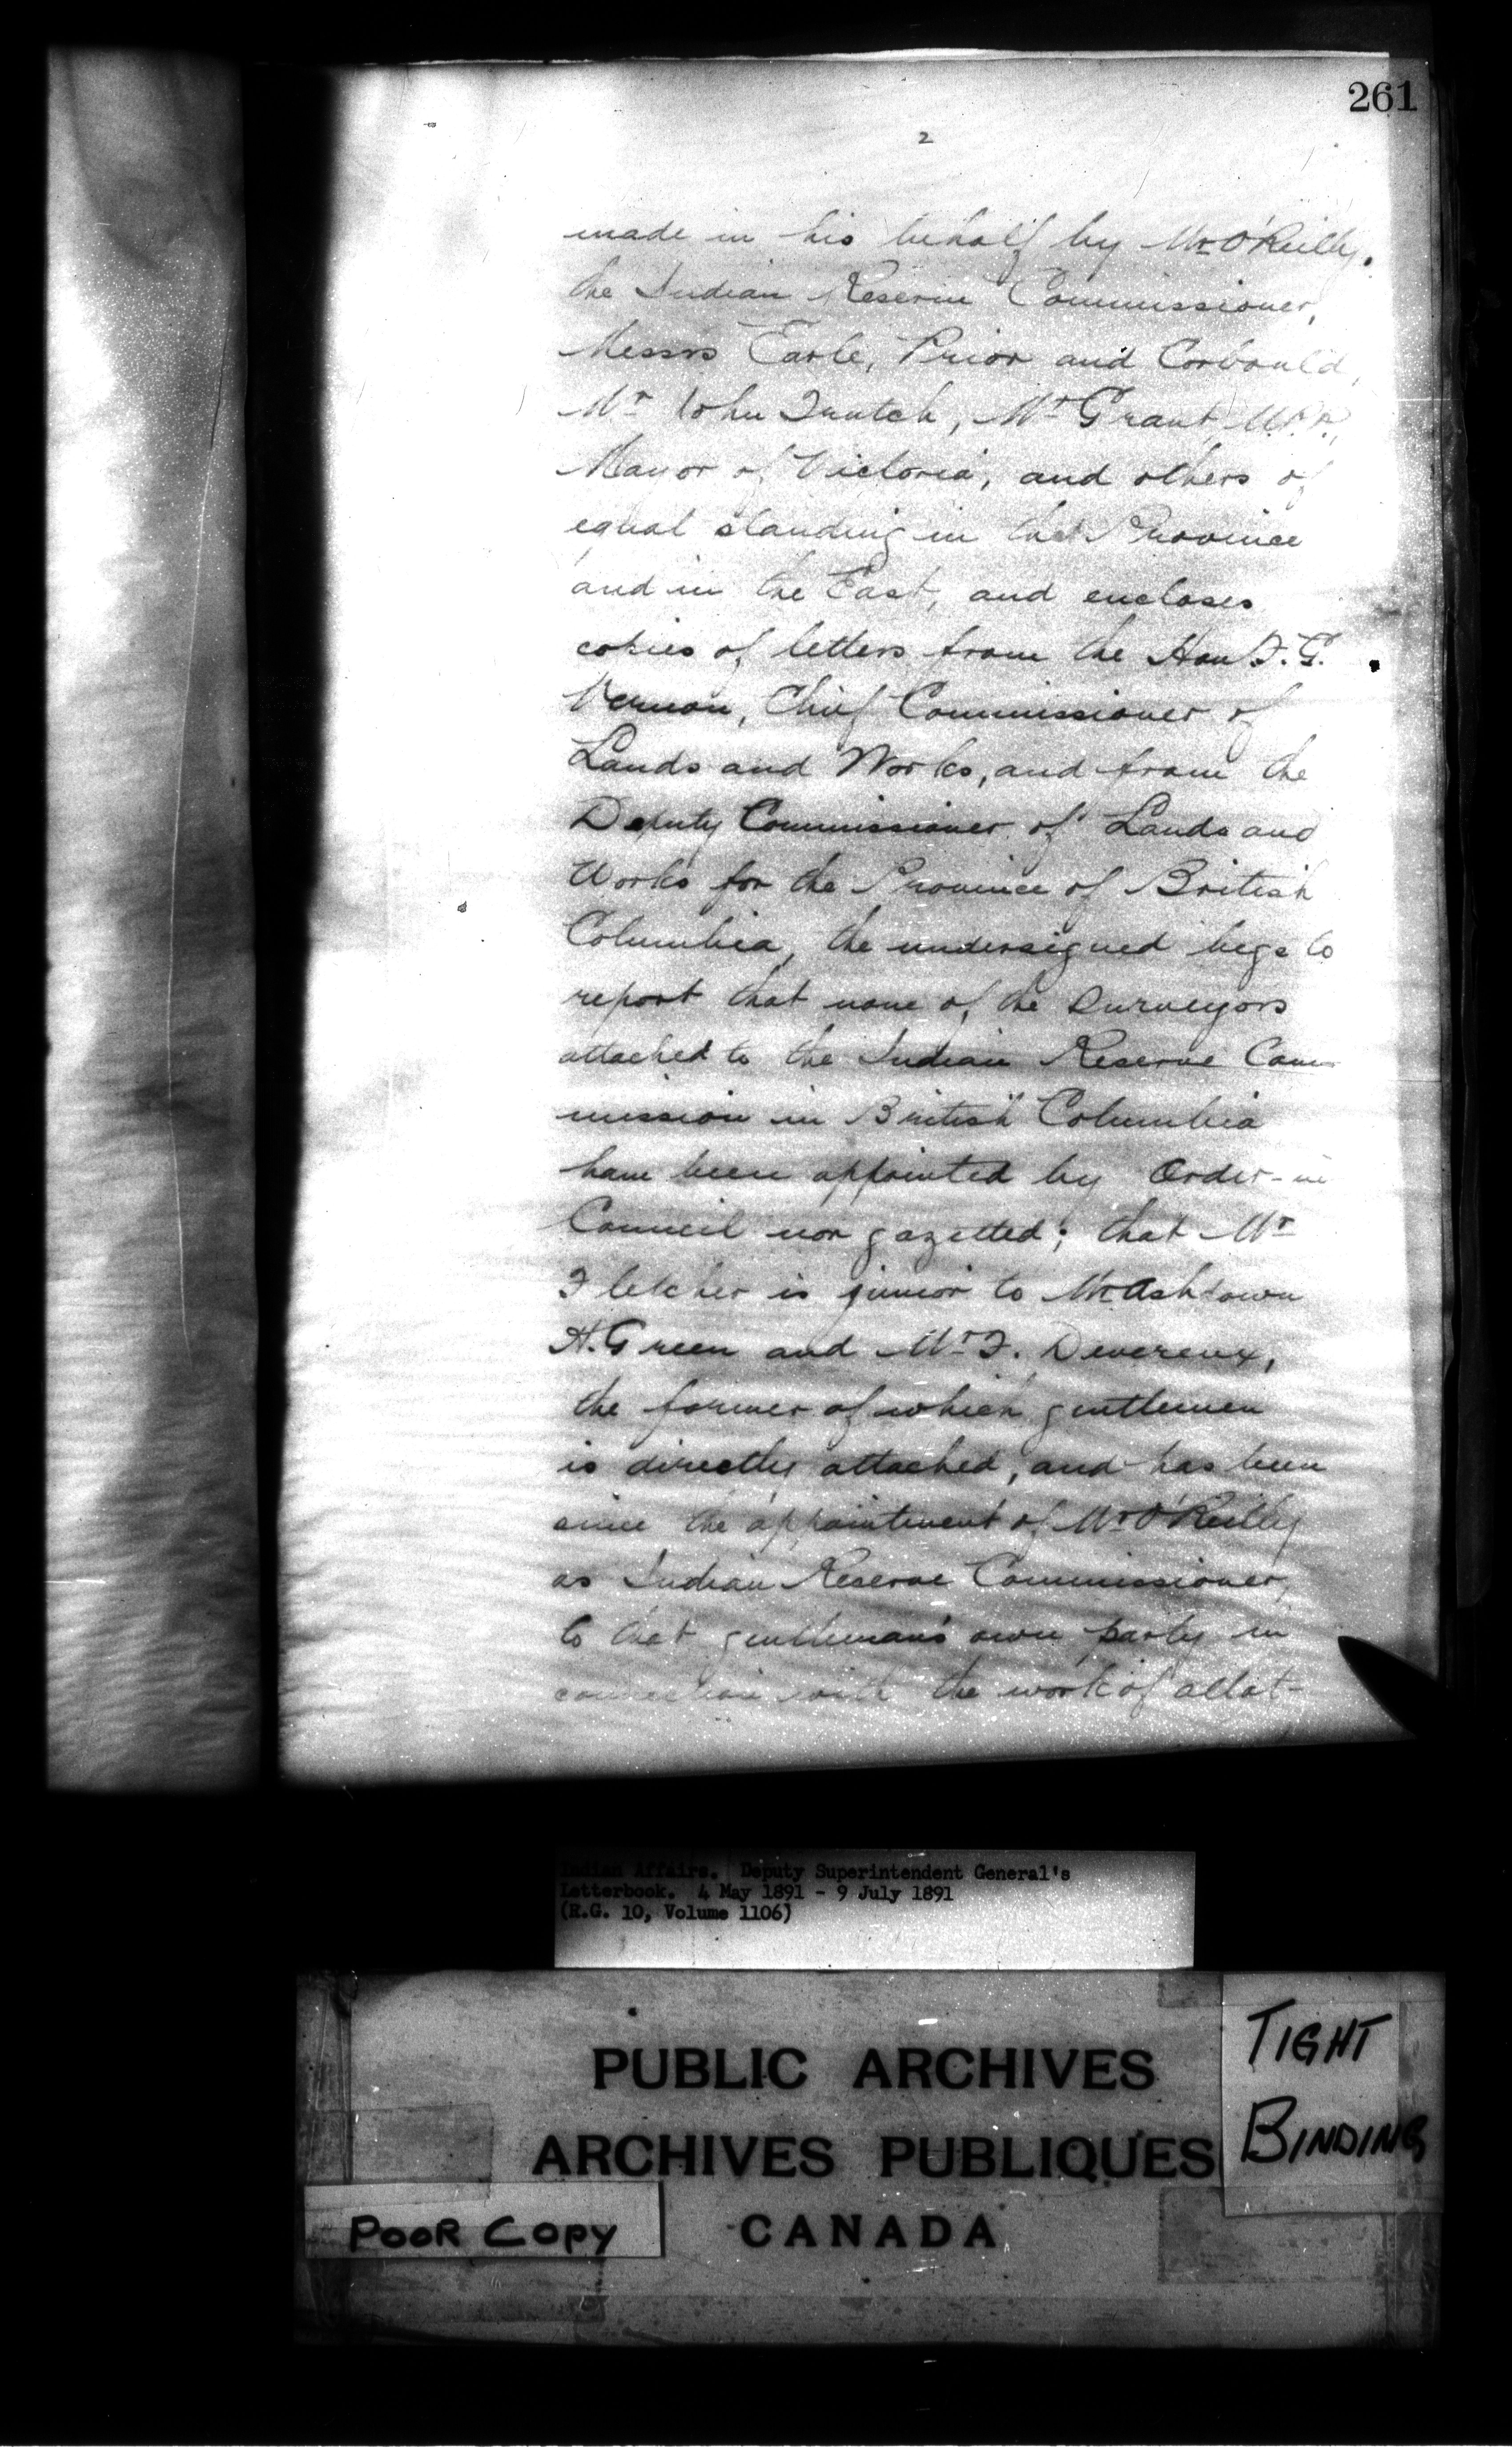 261
2
made in his behalf by Mr O'Reilly,
the Indian Reserve Commissioner,
Messrs Earle, Prior and Corbould,
Mr John Trutch, Mr Grant, M.P.P.,
Mayor of Victoria, and others of
equal standing in that Province
and in the East, and encloses
copies of letters from the Hon F. G.
Vernon, Chief Commissioner of
Lands and Works, and from the
Deputy Commissioner of Lands and
Works for the Province of British
Columbia, the undersigned begs to
report that none of the Surveyors
attached to the Indian Reserve Com-
mission in British Columbia
have been appointed by Order-in
Council nor gazetted; that Mr
Fletcher is junior to Mr Ashdown
H. Green and Mr F. Devereux,
the former of which gentlemen
is directly attached, and has been
since the appointment of Mr O'Reilly
as Indian Reserve Commissioner,
to that gentleman's own party in
connection with the work of allot-
Indian Affairs. Deputy Superintendent General's
Letterbook. 4 May 1891 - 9 July 1891
(R.G. 10, Volume 1106)
PUBLIC ARCHIVES
ARCHIVES PUBLIQUES
CANADA
TIGHT
BINDING
POOR COPY